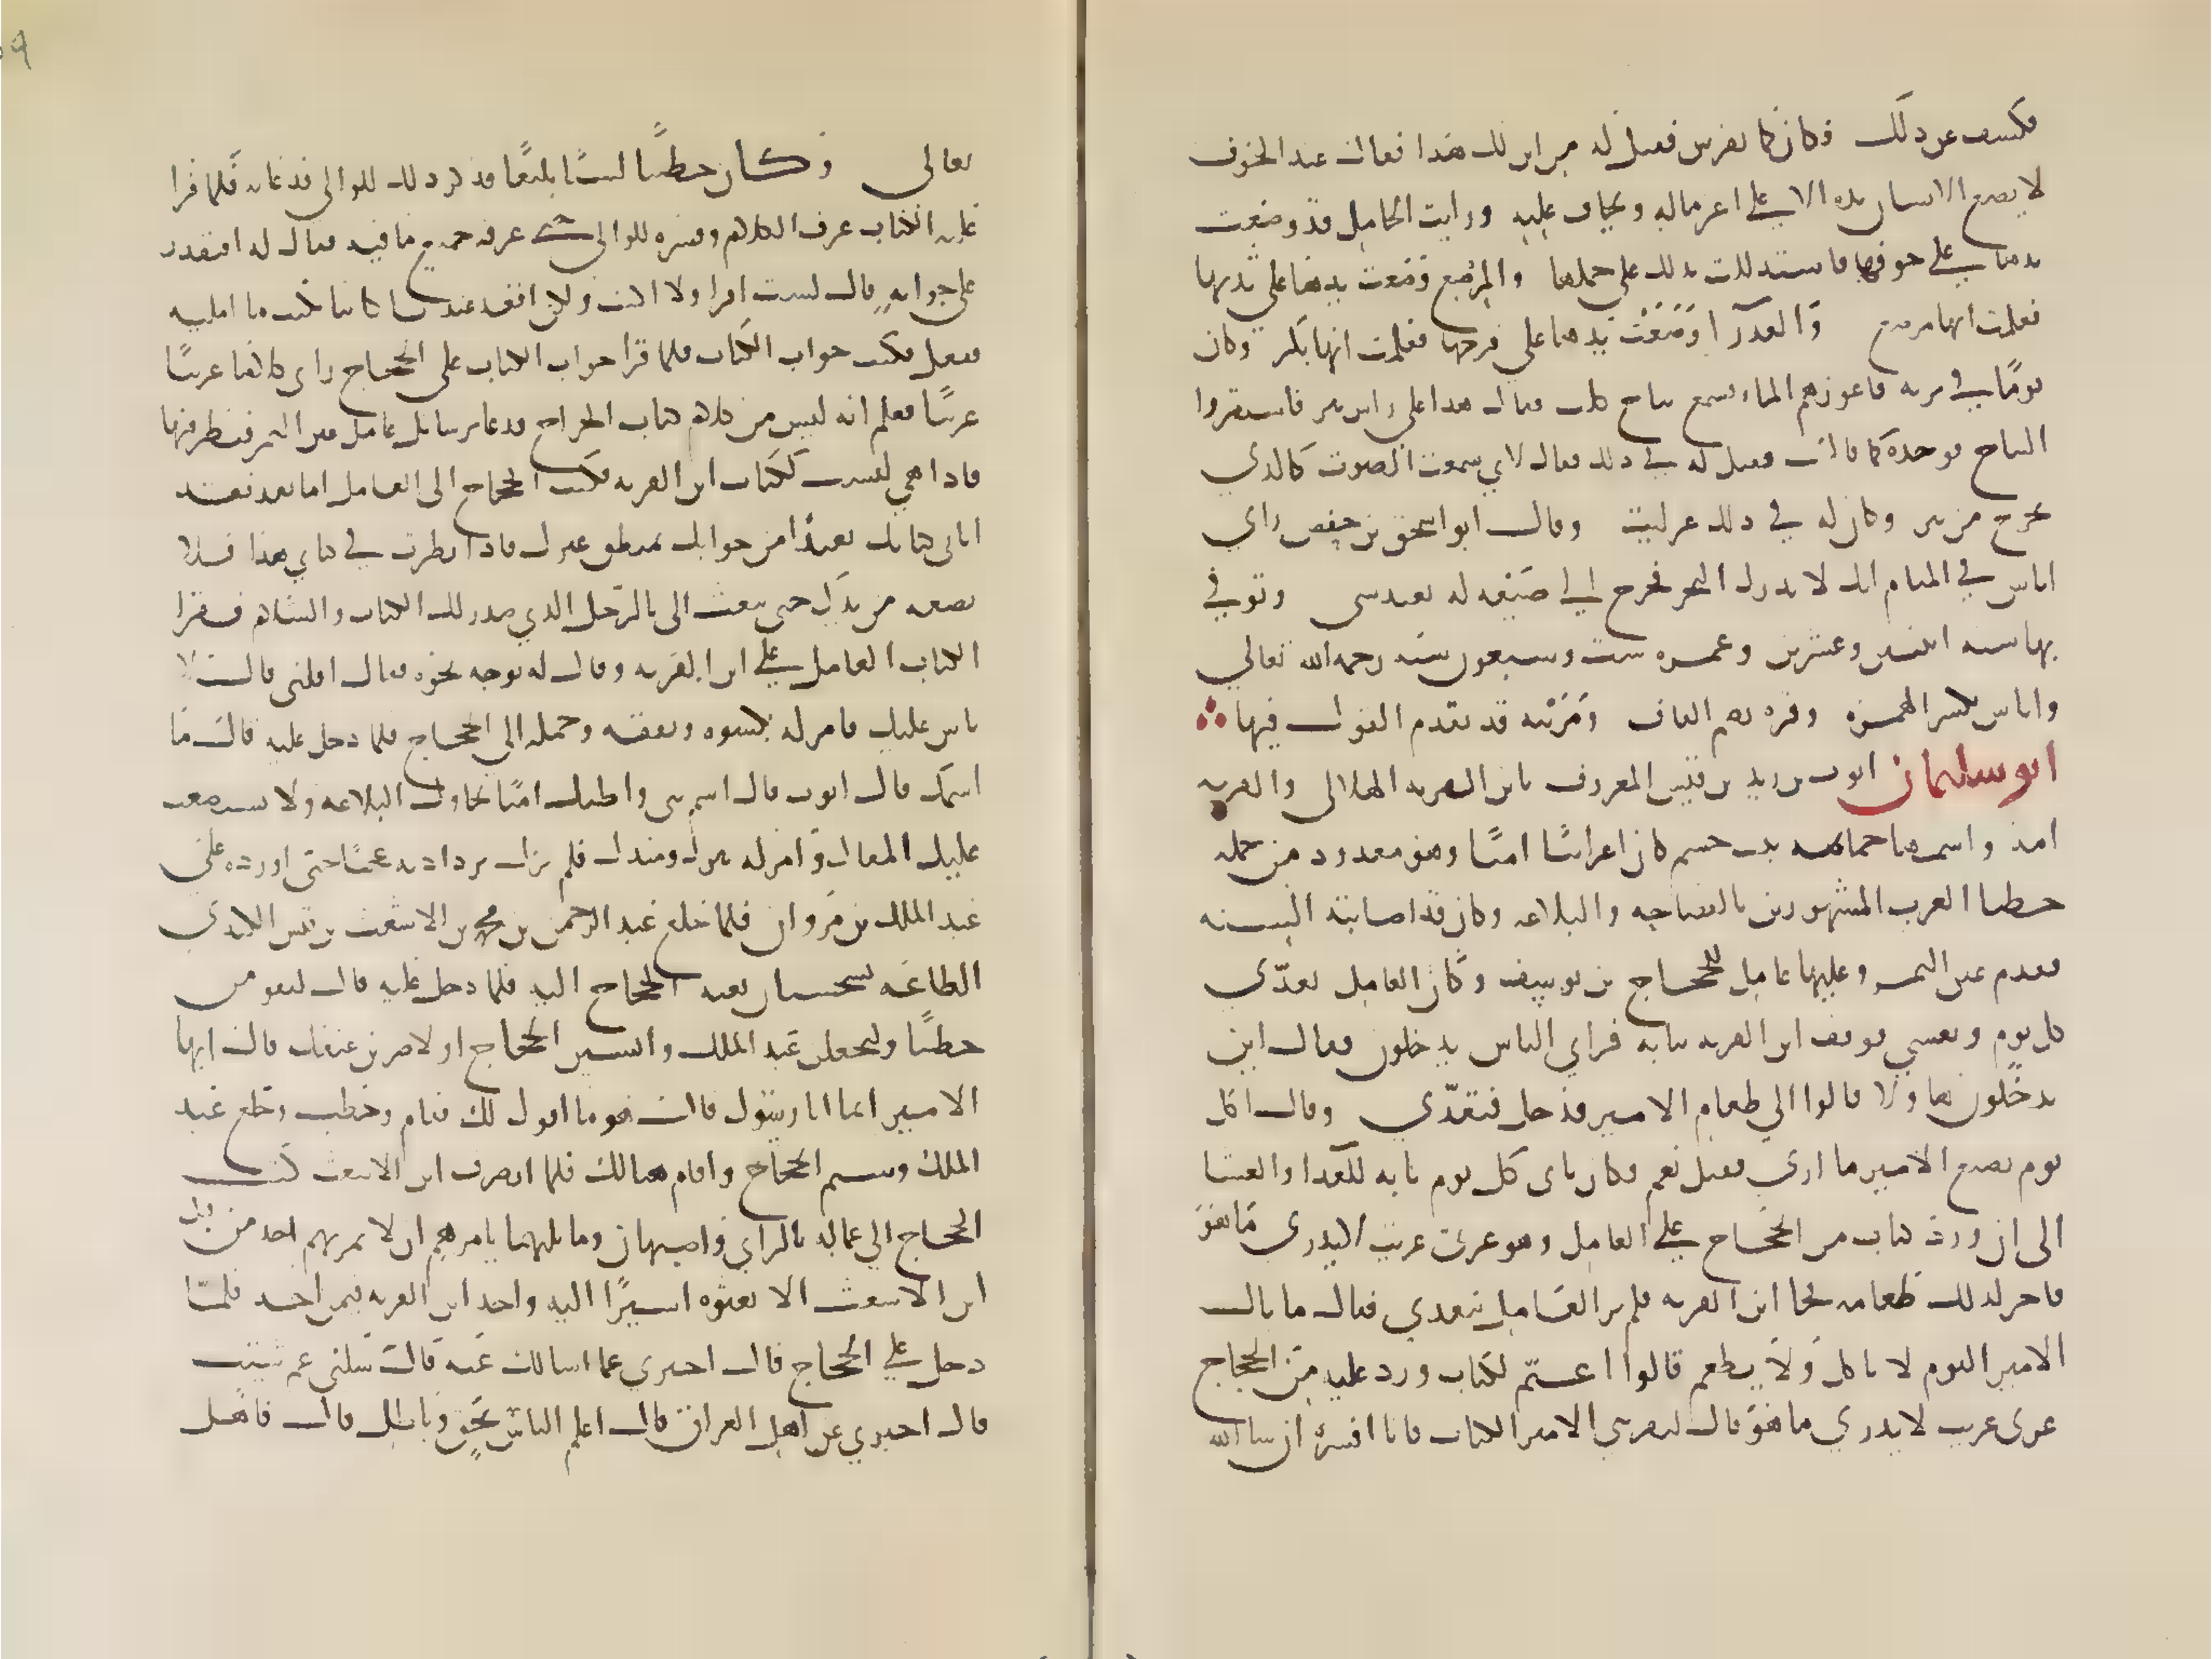 فكشف عن ذلك فكان كما تفرس فقيل له من اين لك هذا فقال عند الخوف
لا يضع الانسان يده الا على اعز ماله ويخاف عليه ورايت الحامل قد وضعت
يدها على جوفها فاستدللت بذلك على حملها والمرضع وضعت يدها على ثديها
فعلمت انها مرضع والعذرا وضعت يدها على فرجها فعلمت انها بكر وكان
يوما في برية فاعوزهم الماء فسمع نباح كلب فقال هذا على راس بير فاستقروا
النباح فوجدوه كما قال فقيل له في ذلك فقال لاني سمعت الصوت كالذي
يخرج من بير وكان له في ذلك غرايب وقال ابو اسحق بن حفص راي
اياس في المنام انه لا يدرك النحر فخرج الى ضيعة له بعبدسى وتوفي
بها سنه اثنتين وعشرين وعمره ست وسبعون سنه رحمه الله تعالي
واياس بكسر الهمزه وقره بضم القاف ومزينه قد تقدم القول فيها
ابو سليمان ايوب بن زيد بن قيس المعروف بابن القريه الهلالى والقريه
امه واسمها جماعه بنت جشم كان اعرابيا اميا وهو معدود من جمله
خطبا العرب المشهورين بالفصاحه والبلاغه وكان قد اصابته السنه
فقدم عين التمر وعليها عامل للحجاج بن يوسف وكان العامل يغدّي
كل يوم ويعشي فوقف ابن القريه ببابه فراي الناس يدخلون فقال اين
يدخلون هاولا قالوا الي طعام الامير فدخل فتغدّي وقال اكل
يوم يصنع الامير ما اري فقيل نعم فكان ياتى كل يوم بابه للغدا والعشا
الى ان ورد كتاب من الحجاج على العامل وهو عربى غريب لا يدري ما هو
فاخر لذلك طعامه فجا ابن القريه فلم ير العامل يتغدي فقال ما بال
الامير اليوم لا ياكل ولا يطعم قالوا اغتم لكتاب ورد عليه من الحجاج
عربى غريب لا يدري ما هو قال ليقرينى الامير الكتاب فانا افسره ان شا الله
تعالى وكان خطيبا لسنا بليغا فذكر ذلك للوالى فدعا به فلما قرا
عليه الكتاب عرف الكلام وفسره للوالى حتى عرفه جميع ما فيه فقال له افتقدر
على جوابه قال لست اقرا ولا اكتب ولكن اقعد عند كاتبا يكتب ما امليه
ففعل فكتب جواب الكتاب فلما قرا جواب الكتاب على الحجاج راى كلاما عربيا
غريبا فعلم انه ليس من كلام كتاب الخراج فدعا برسايل عامل عين التمر فنظر فيها
فاذا هي ليست ككتاب ابن القريه فكتب الحجاج الى العامل اما بعد فقد
اتانى كتابك بعيدا من جوابك بمنطق غيرك فاذا نظرت في كتابي هذا فلا
تضعه من يدك حتى تبعث الى بالرجل الذي صدر لك الكتاب والسلام فقرا
الكتاب العامل على ابن القريه وقال له توجه نحوه فقال اقلنى قال لا
باس عليك فامر له بكسوه ونفقه وحمله الى الحجاج فلما دخل عليه قال ما
اسمك قال ايوب قال اسم نبى واظنك اميا تحاول البلاغه ولا يستصعب
عليك المقال وامر له بنزل ومنزل فلم يزل يزداد به عجبا حتى اوفده على
عبد الملك بن مروان فلما خلع عبد الرحمن بن محمد بن الاشعث بن قيس الكندي
الطاعه بسجستان بعثه الحجاج اليه فلما دخل عليه قال لتقومن
خطيبا ولتخلعن عبد الملك ولتسبن الحجاج او لاضربن عنقك قال ايها
الامير انما انا رسول قال هو ما اقول لك فقام وخطب وخلع عبد
الملك وشتم الحجاج واقام هنالك فلما انصرف ابن الاشعث كتب
الحجاج الي عماله بالراي واصبهان وما يليهما يامرهم ان لا يمر بهم احد من قبل
ابن الاشعث الا بعثوه اسيرا اليه واخذ ابن القريه فيمن اخذ فلما
دخل على الحجاج قال اخبرني عما اسالك عنه قال سلنى عم شيت
قال اخبرني عن اهل العراق قال اعلم الناس بحق وباطل قال فاهل